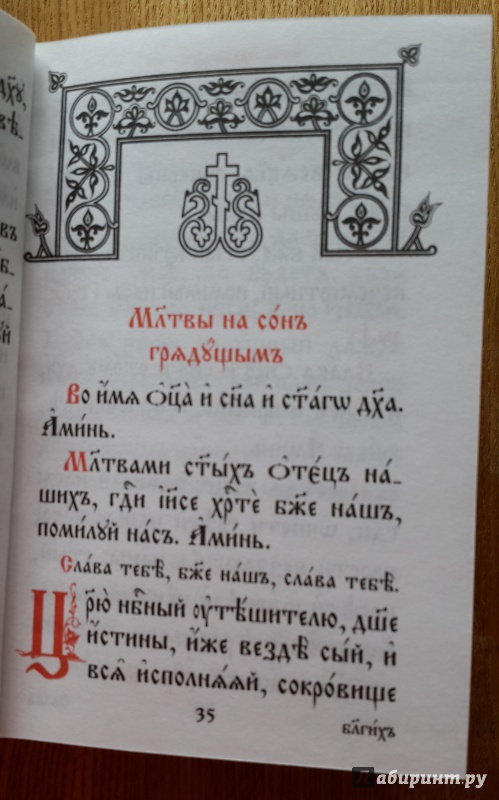 Мл҃твы на со́нъ
грѧдꙋ́щымъ
Во и҆́мѧ ѻ҆ц҃а̀ и҆ сн҃а и҆ ст҃а́гѡ дх҃а.
А҆ми́нь.
Мл҃твами ст҃ы́хъ ѻ҆те́цъ на-
шихъ, гдⷭ҇и і҆и҃се хрⷭ҇тѐ бж҃е нашъ,
поми́лꙋй на́съ. А҆ми́нь.
Сла́ва тебѣ̀, бж҃е на́шъ, сла́ва тебѣ̀.
Цр҃ю̀ нбⷭ҇ный ᲂу҆тѣ́шителю, дш҃е
и҆́стины, и҆́же вездѣ̀ сы́й, и҆
всѧ̑ и҆сполнѧ́ѧй, сокро́вище
35
бл҃ги́хъ
Лабиринт.ру